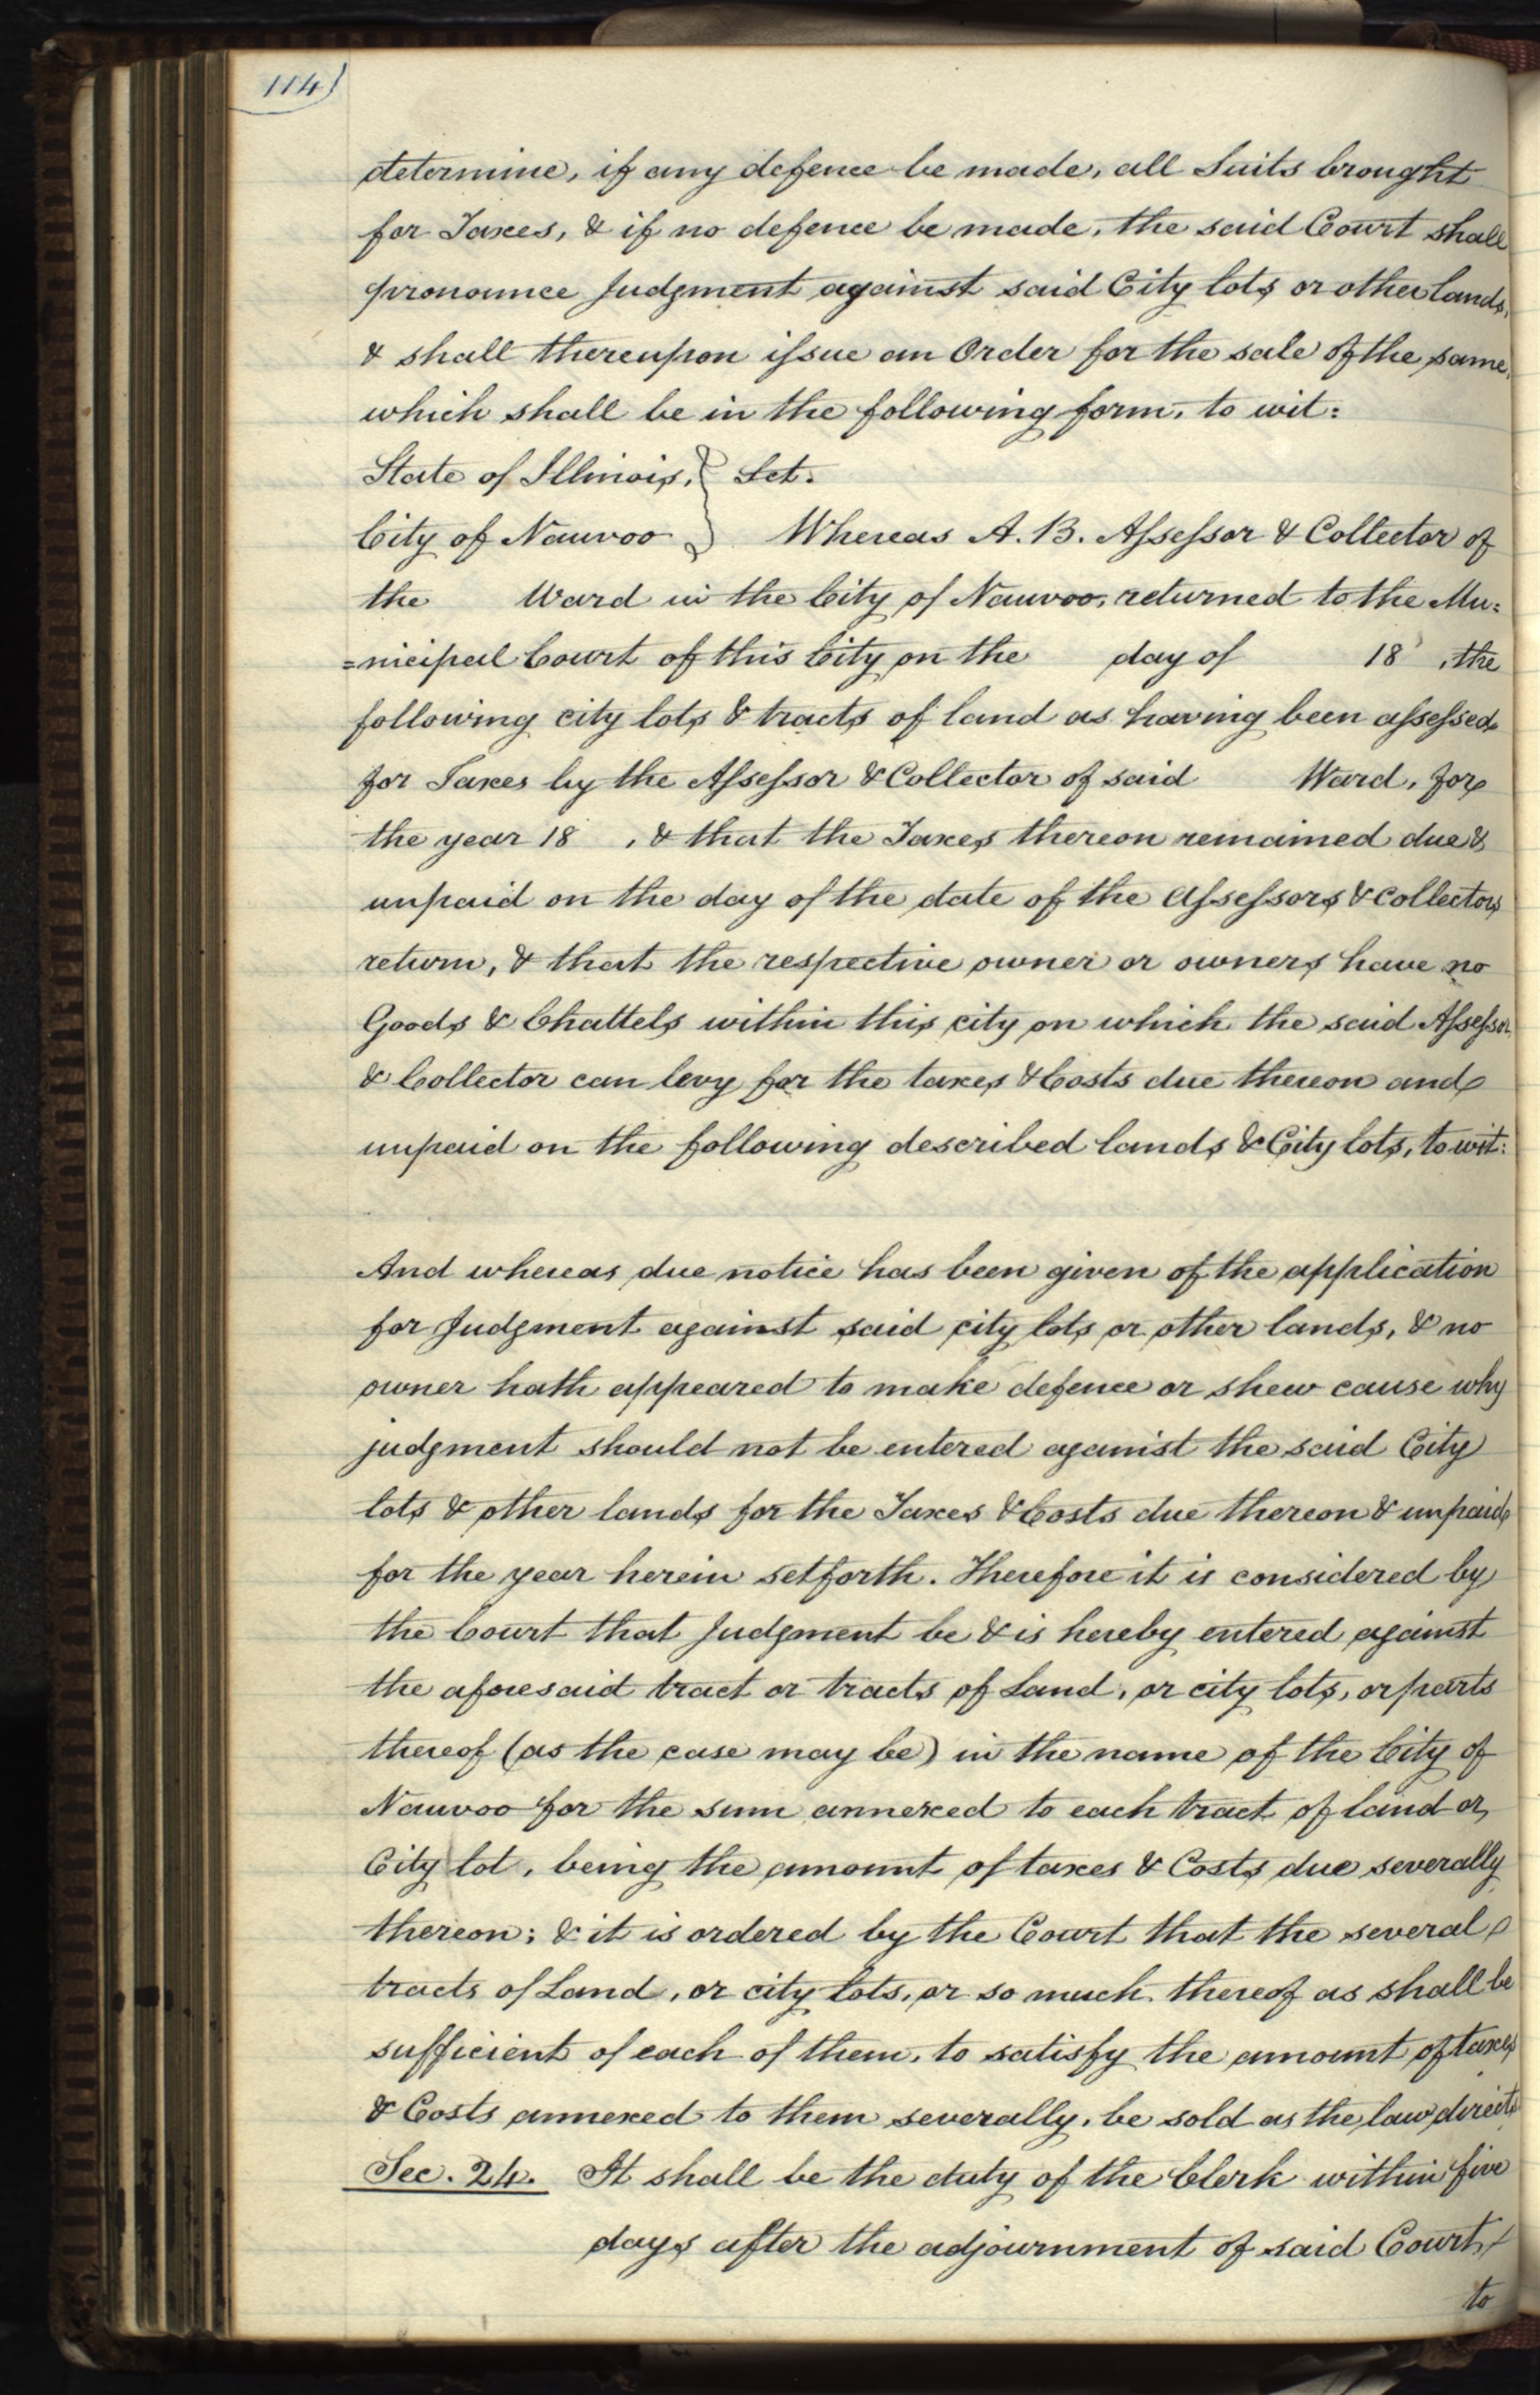 114)
determine, if any defence be made, all Suits brought
for Taxes, & if no defence be made, the said Court shall
pronounce Judgment against said City lots or other lands,
& shall thereupon issue an Order for the sale of the same,
which shall be in the following form, to wit:
State of Illinois, } Sct.
City of Nauvoo } Whereas A. B. Assessor & Collector of
the Ward in the City of Nauvoo, returned to the Mu=
=nicipal Court of this City on the day of 18 , the
following city lots & tracts of land as having been assessed
for Taxes by the Assessor & Collector of said Ward, for
the year 18 , & that the Taxes thereon remained due &
unpaid on the day of the date of the Assessors & Collectors
return, & that the respective owner or owners have no
Goods & Chattels within this city on which the said Assessor
& Collector can levy for the taxes & Costs due thereon and
unpaid on the following described lands & City lots, to wit:
And whereas due notice has been given of the application
for Judgment against said city lots or other lands, & no
owner hath appeared to make defence or shew cause why
judgment should not be entered against the said City
lots & other lands for the Taxes & Costs due thereon & unpaid
for the year herein setforth. Therefore it is considered by
the Court that Judgment be & is hereby entered against
the aforesaid tract or tracts of Land, or city lots, or parts
thereof (as the case may be) in the name of the City of
Nauvoo for the sum annexed to each tract of land or
City lot, being the amount of taxes & Costs due severally
thereon; & it is ordered by the Court that the several
tracts of Land, or city lots, or so much thereof as shall be
sufficient of each of them, to satisfy the amount of taxes
& Costs annexed to them severally, be sold as the law directs
Sec. 24. It shall be the duty of the Clerk within five
days after the adjournment of said Court,
to